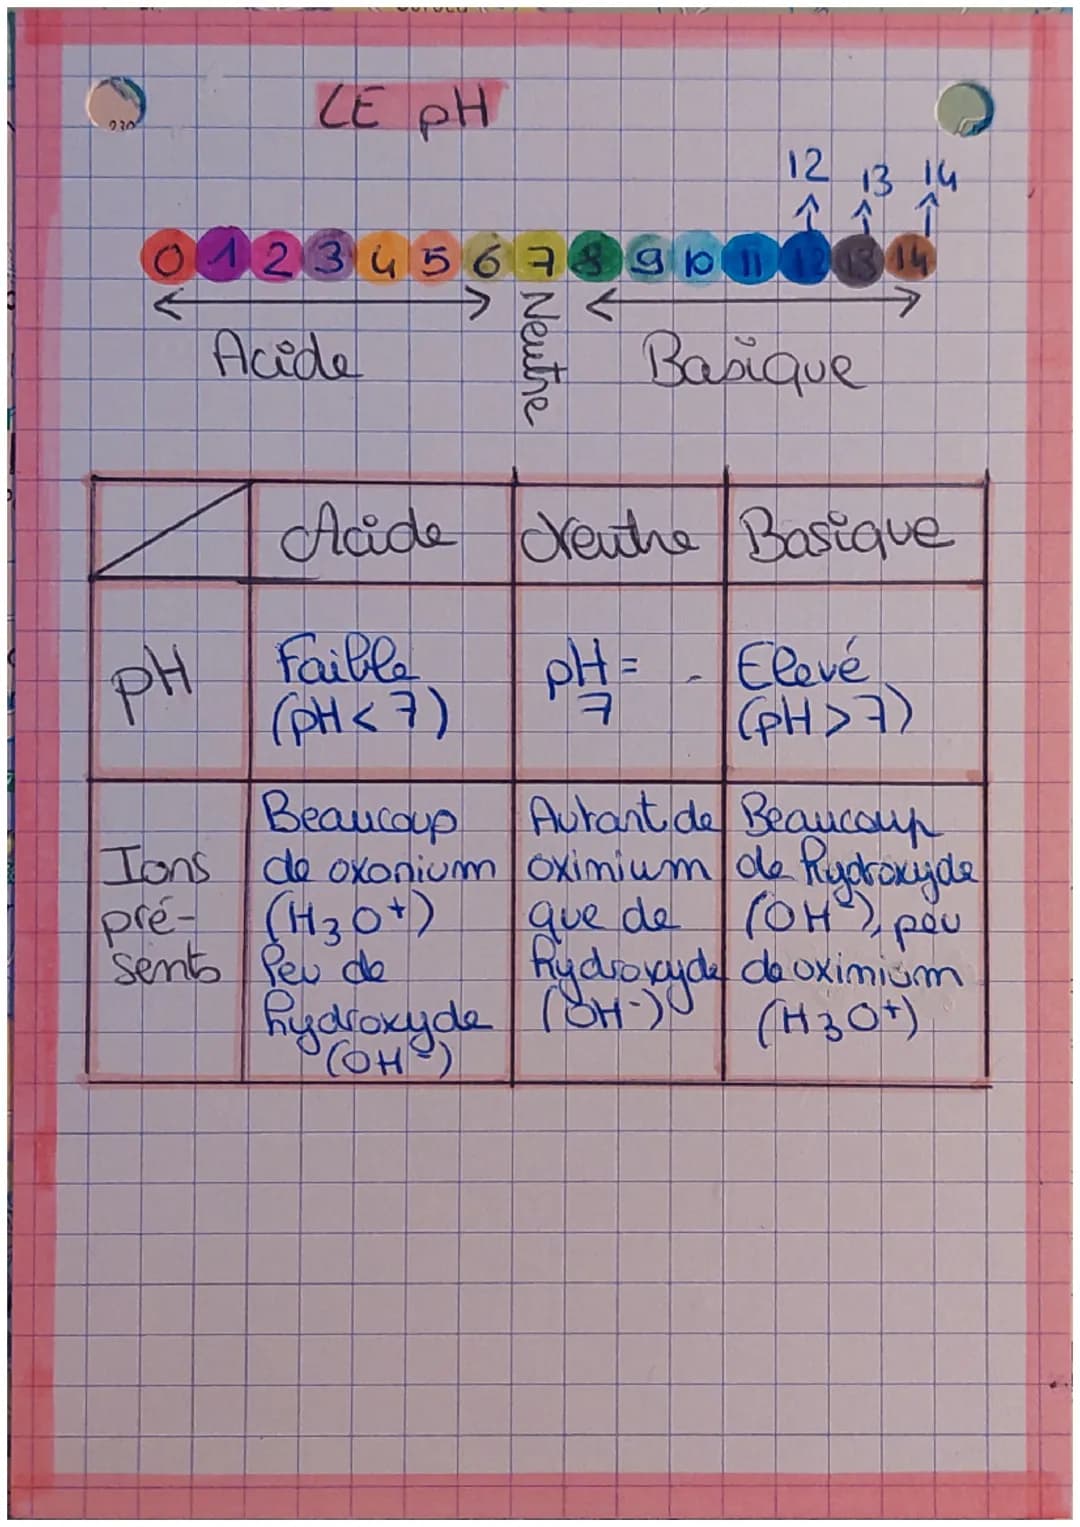 LE pH
12 13 14
0 1 2 3 4 5 6 7 8 9 10 11 12 13 14
Acide
Neutre
Basique
Acide
Neutre
Basique
pH
Faible
(pH < 7)
pH =
7
Elevé
(pH > 7)
Ions
pré-
sents
Beaucoup
de oxonium
(H3O+)
Peu de
hydroxyde
(OH-)
Autant de
oximium
que de
hydroxyde
(OH-)
Beaucoup
de hydroxyde
(OH-), peu
de oximium
(H3O+)